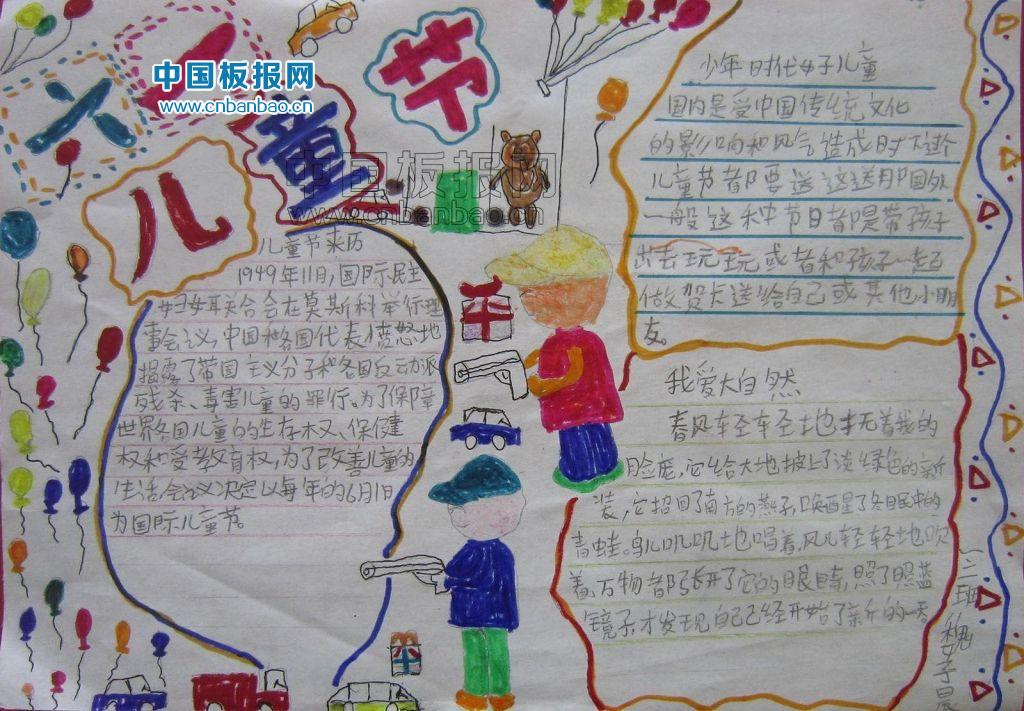 六一
儿童节
中国板报网
www.cnbanbao.cn
中国板报网
www.cnbanbao.cn
儿童节来历
1949年11月,国际民主
妇女联合会在莫斯科举行理
事会议,中国和各国代表愤怒地
揭露了帝国主义分子和各国反动派
残杀、毒害儿童的罪行。为了保障
世界各国儿童的生存权、保健
权和受教育权,为了改善儿童的
生活,会议决定以每年的6月1日
为国际儿童节。
少年时代女子儿童
国内是受中国传统文化
的影响和风气造成时下逢个
儿童节都要送这送那国外
一般这种节日都是带孩子
出去玩玩或者和孩子一起
做贺卡送给自己或其他小朋
友。
我爱大自然
春风轻轻地抚着我的
脸庞,它给大地披上了淡绿色的新
装,它招回了南方的燕子,唤醒了冬眠中的
青蛙。鸟儿叽叽地唱着,风儿轻轻地吹
着,万物都睁开了它的眼睛,照了照蓝
镜子,才发现自己已经开始了新的一春
一三班 魏子晨